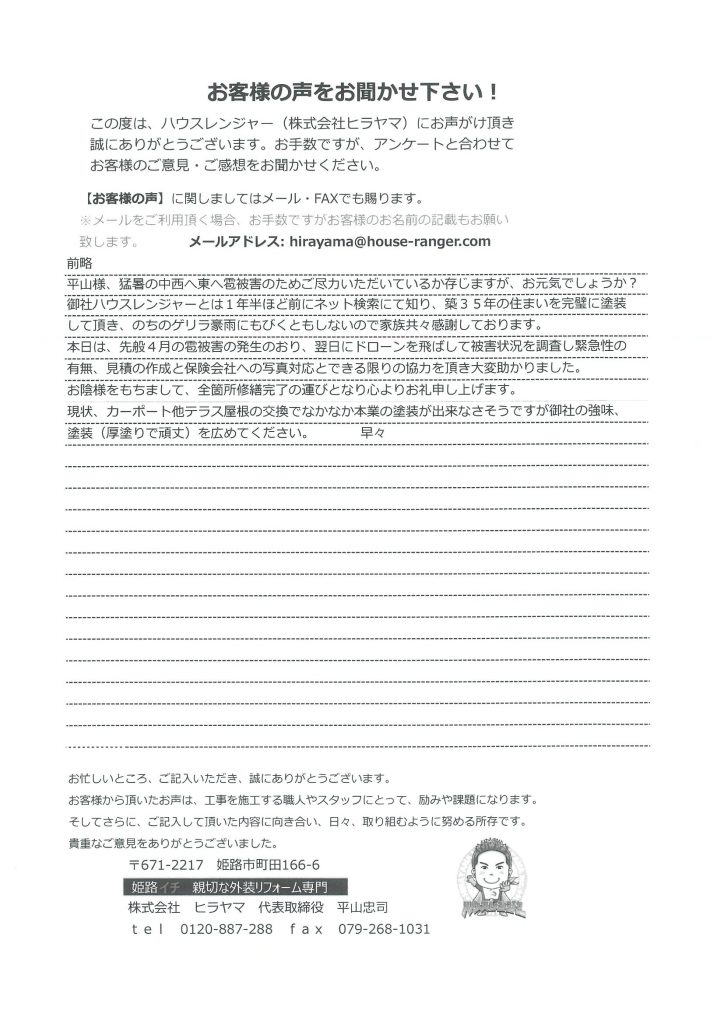 お客様の声をお聞かせ下さい！
この度は、ハウスレンジャー（株式会社ヒラヤマ）にお声がけ頂き
誠にありがとうございます。お手数ですが、アンケートと合わせて
お客様のご意見・ご感想をお聞かせください。
【お客様の声】に関しましてはメール・FAXでも賜ります。
※メールをご利用頂く場合、お手数ですがお客様のお名前の記載もお願い
致します。 メールアドレス: hirayama@house-ranger.com
前略
平山様、猛暑の中西へ東へ雹被害のためご尽力いただいているか存じますが、お元気でしょうか？
御社ハウスレンジャーとは１年半ほど前にネット検索にて知り、築３５年の住まいを完璧に塗装
して頂き、のちのゲリラ豪雨にもびくともしないので家族共々感謝しております。
本日は、先般４月の雹被害の発生のおり、翌日にドローンを飛ばして被害状況を調査し緊急性の
有無、見積の作成と保険会社への写真対応とできる限りの協力を頂き大変助かりました。
お陰様をもちまして、全箇所修繕完了の運びとなり心よりお礼申し上げます。
現状、カーポート他テラス屋根の交換でなかなか本業の塗装が出来なさそうですが御社の強味、
塗装（厚塗りで頑丈）を広めてください。 早々
お忙しいところ、ご記入いただき、誠にありがとうございます。
お客様から頂いたお声は、工事を施工する職人やスタッフにとって、励みや課題になります。
そしてさらに、ご記入して頂いた内容に向き合い、日々、取り組むように努める所存です。
貴重なご意見をありがとうございました。
〒671-2217 姫路市町田166-6
姫路イチ 親切な外装リフォーム専門
株式会社 ヒラヤマ 代表取締役 平山忠司
ｔｅｌ 0120-887-288 ｆａｘ 079-268-1031